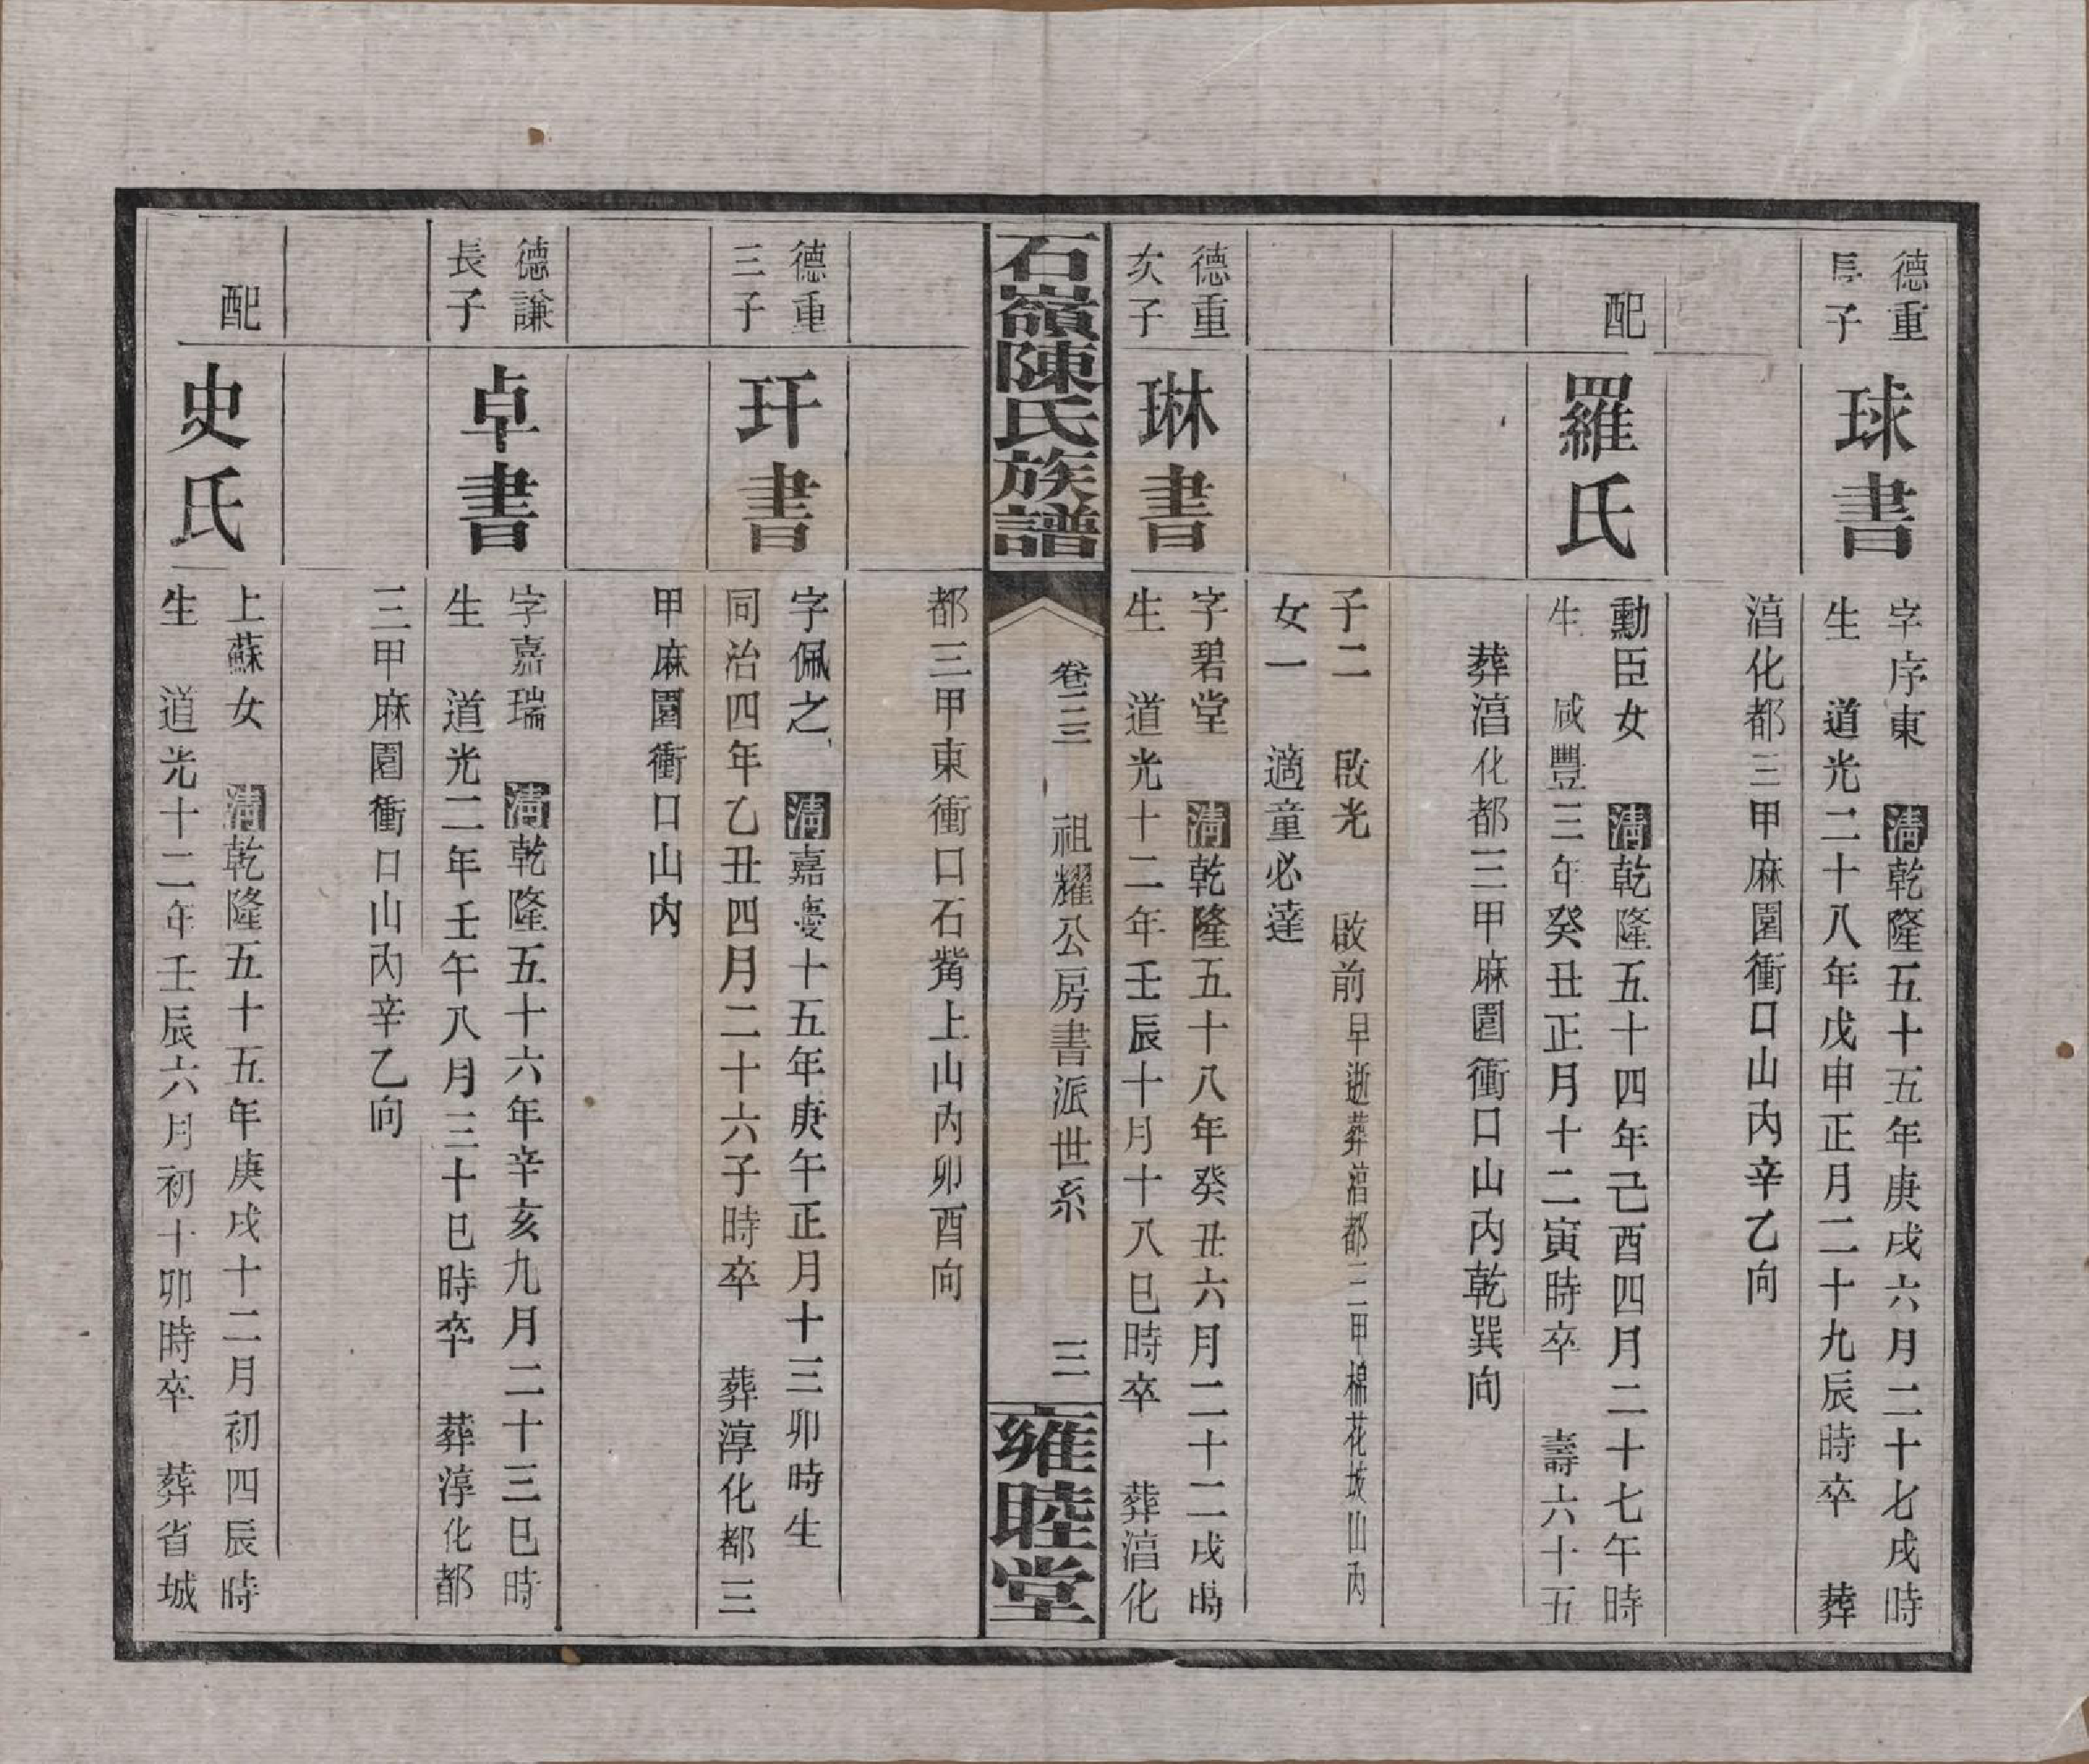 德重
長子
球書
字序東 清乾隆五十五年庚戌六月二十七戌時
生 道光二十八年戊申正月二十九辰時卒 葬
湻化都三甲麻園衝口山內辛乙向
配
羅氏
勳臣女 清乾隆五十四年己酉四月二十七午時
生 咸豐三年癸丑正月十二寅時卒 壽六十五
葬湻化都三甲麻園衝口山內乾巽向
子二 啟光 啟前早逝葬湻都三甲棉花坡山內
女一 適童必達
德重
次子
琳書
字碧堂 清乾隆五十八年癸丑六月二十二戌時
生 道光十二年壬辰十月十八巳時卒 葬湻化
石嶺陳氏族譜
卷三 祖耀公房書派世系 三
雍睦堂
都三甲東衝口石觜上山內卯酉向
德重
三子
玕書
字佩之 清嘉慶十五年庚午正月十三卯時生
同治四年乙丑四月二十六子時卒 葬淳化都三
甲麻園衝口山內
德謙
長子
卓書
字嘉瑞 清乾隆五十六年辛亥九月二十三巳時
生 道光二年壬午八月三十巳時卒 葬淳化都
三甲麻園衝口山內辛乙向
配
史氏
上蘇女 清乾隆五十五年庚戌十二月初四辰時
生 道光十二年壬辰六月初十卯時卒 葬省城